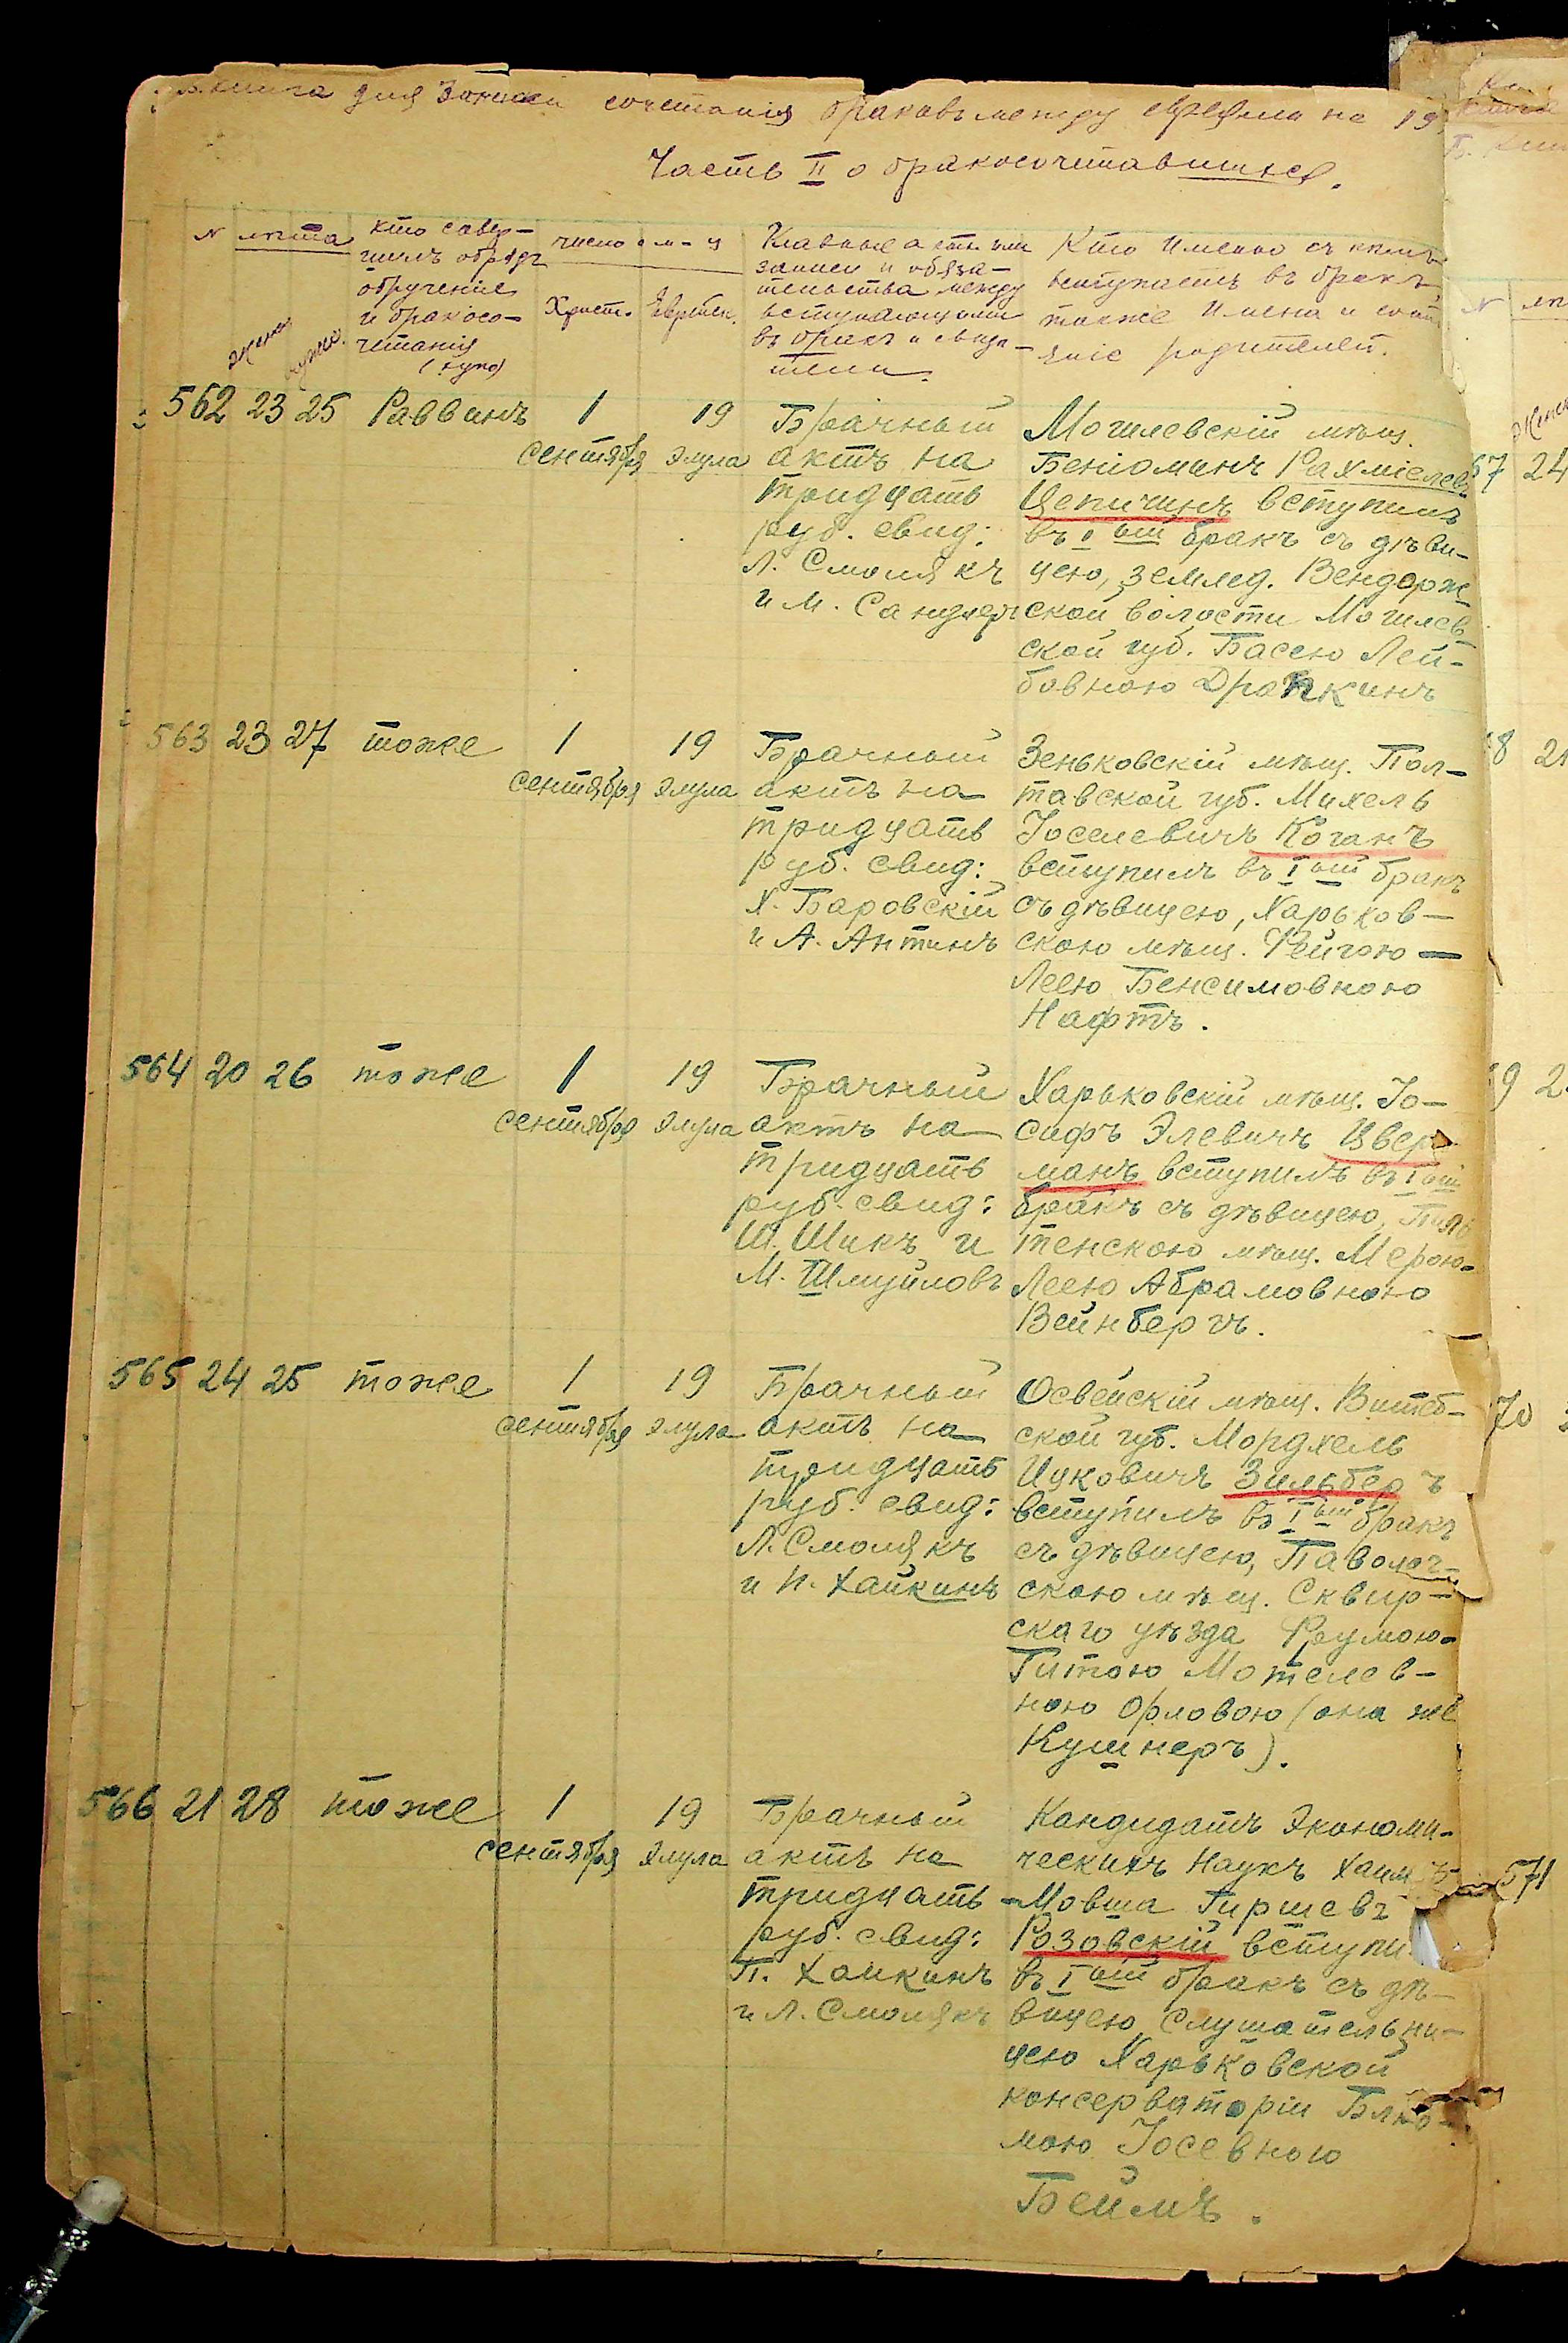 книга для записи сочетанія браковъ между евреями на 19
Часть II о бракосочетавшихся.
№ лѣта
Жена мужч.
кто совер-
шилъ обрядъ
обрученія
и бракосо-
четанія
(хупа)
число и м-ц
Христ. Еврейск.
Главные акты или
записи и обяза-
тельства между
вступающими
въ бракъ и свидѣ-
тели.
Кто именно съ кѣмъ
вступаетъ въ бракъ,
также имена и сост
яніе родителей.
562 23 25 Раввинъ 1 сентября 19 элула
Брачный
актъ на
тридцать
руб. свид:
Л. Смолякъ
и М. Сандлеръ
Могилевскій мѣщ.
Беніоминъ Рахміелев
Цепичинъ вступилъ
въ I ый бракъ съ дѣви-
цею, землед. Вендорж
ской волости Могилев-
ской губ. Басею Лей-
бовною Драпкинъ
563 23 27 тоже 1 сентября 19 элула
Брачный
актъ на
тридцать
руб. свид:
Х. Баровскій
и А. Антинъ
Зеньковскій мѣщ. Пол-
тавской губ. Михель
Іоселевичъ Коганъ
вступилъ въ I ый бракъ
съ дѣвицею, Харьков-
скою мѣщ. Фейгою-
Леею Бенсимовною
Нафтъ.
564 20 26 тоже 1 сентября 19 элула
Брачный
актъ на
тридцать
руб. свид:
Ш. Шикъ и
М. Шмуйловъ
Харьковскій мѣщ. Іо-
сифъ Элевичъ Цвер
манъ вступилъ въ I ый
бракъ съ дѣвицею, Пиль
тенскою мѣщ. Мерою-
Леею Абрамовною
Вейнбергъ.
565 24 25 тоже 1 сентября 19 элула
Брачный
актъ на
тридцать
руб. свид:
Л. Смолякъ
и П. Хайкинъ
Освейскій мѣщ. Витеб-
ской губ. Мордхель
Ицковичъ Зильберъ
вступилъ въ I ый бракъ
съ дѣвицею, Паволоч-
скою мѣщ. Сквир-
скаго уѣзда Фрумою-
Гитою Мотелев-
ною Орловою (она же
Кушнеръ).
566 21 28 тоже 1 сентября 19 элула
Брачный
актъ на
тридцать
руб. свид:
П. Хаикинъ
и Л. Смолякъ
Кандидатъ Экономи-
ческихъ Наукъ Хаимъ-
-Мовша Гиршев
Розовскій вступи
въ I ый бракъ съ дѣ-
вицею слушательни-
цею Харьковской
консерваторіи Блю-
мою Іосевною
Беймъ.
67 24
68 21
69 2
70
571